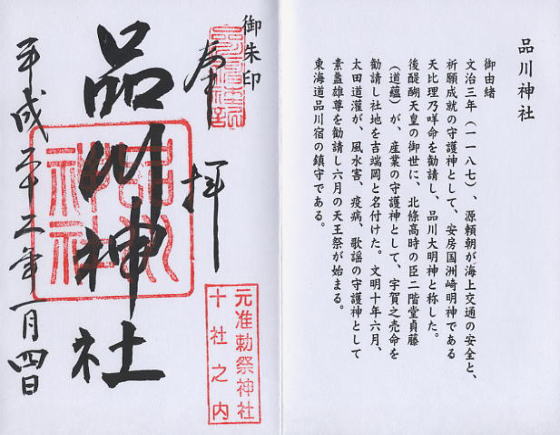 品川神社
御由緒
文治三年(一一八七)、源頼朝が海上交通の安全と、
祈願成就の守護神として、安房国洲崎明神である
天比理乃咩命を勧請し、品川大明神と称した。
後醍醐天皇の御世に、北條高時の臣二階堂貞藤
(道蘊)が、産業の守護神として、宇賀之売命を
勧請し社地を吉端岡と名付けた。文明十年六月、
太田道灌が、風水害、疫病、歌謡の守護神として
素盞雄尊を勧請し六月の天王祭が始まる。
東海道品川宿の鎮守である。
御朱印
奉拝
元准勅祭神社
十社之内
品川神社
品川
神社
平成二十二年一月四日